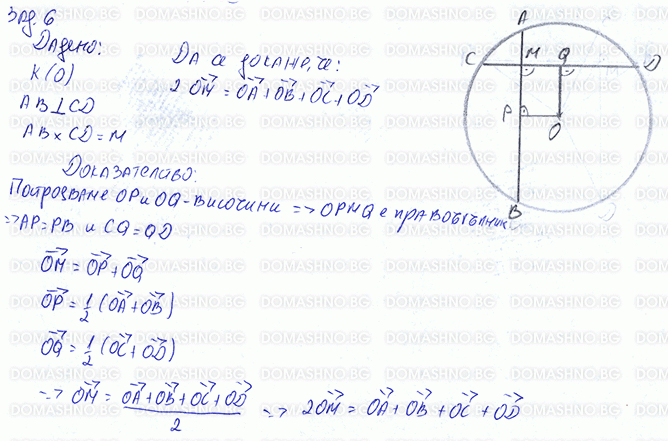 Зад. 6
Дадено:
K(O)
AB⊥CD
AB×CD=M
Да се докаже, че:
2OM⃗ = OA⃗ + OB⃗ + OC⃗ + OD⃗
Доказателство:
Построяваме OP и OQ - височини => OPMQ е правоъгълник
=> AP=PB и CQ=QD
OM⃗ = OP⃗ + OQ⃗
OP⃗ = 1/2 (OA⃗ + OB⃗)
OQ⃗ = 1/2 (OC⃗ + OD⃗)
=> OM⃗ = (OA⃗ + OB⃗ + OC⃗ + OD⃗)/2 => 2OM⃗ = OA⃗ + OB⃗ + OC⃗ + OD⃗
A
C M Q D
P O
B
DOMASHNO.BG